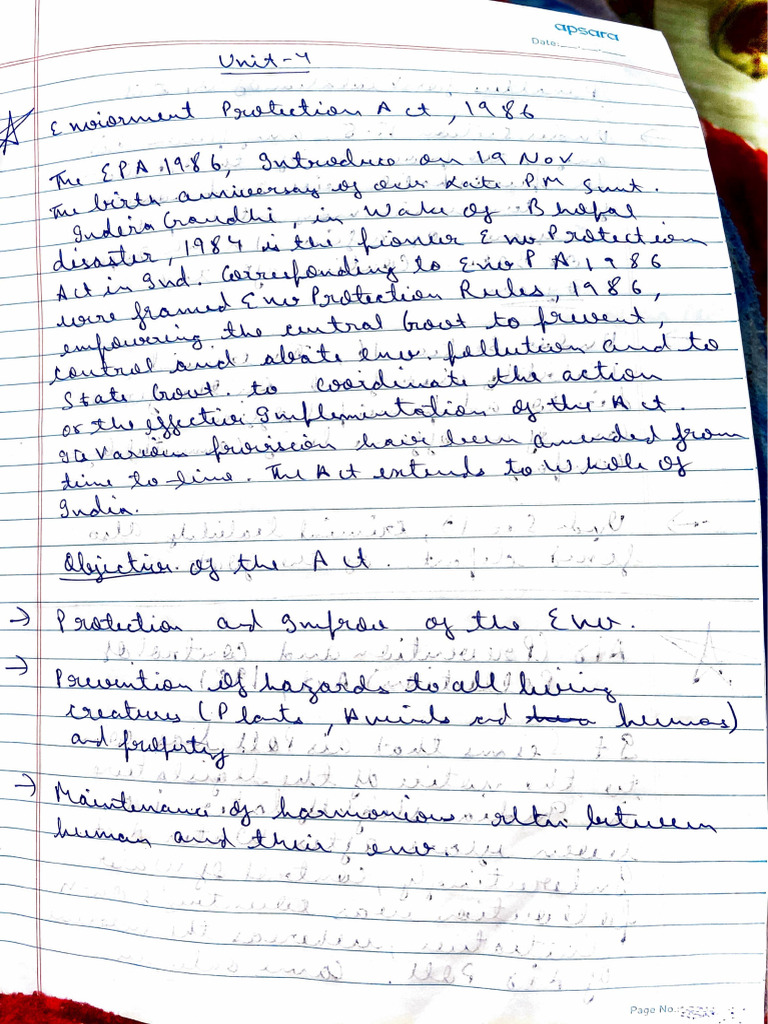 apsara
Date:
Unit-4
Enviorment Protection Act, 1986
The EPA 1986, Introduce on 19 Nov
The birth anniversay of our Late P.M Smt.
Indera Gandhi, in Wake of Bhopal
disaster, 1984 is the pioneer Env Protection
Act in Ind. Corresponding to Env P A 1986
were framed Env Protection Rules, 1986,
empowering the central Govt to prevent,
control and abate env. pollution and to
State Govt. to coordinate the action
or the effective Implementation of the Act.
Various provision have been amended from
time to time. The Act extends to Whole of
India.
Objective of the Act.
→ Protection and Improve of the Env.
→ Prevention of hazards to all living
creatures (Plants, Animals and humas)
and property
→ Maintenance of harmonious between
human and their env.
Page No.